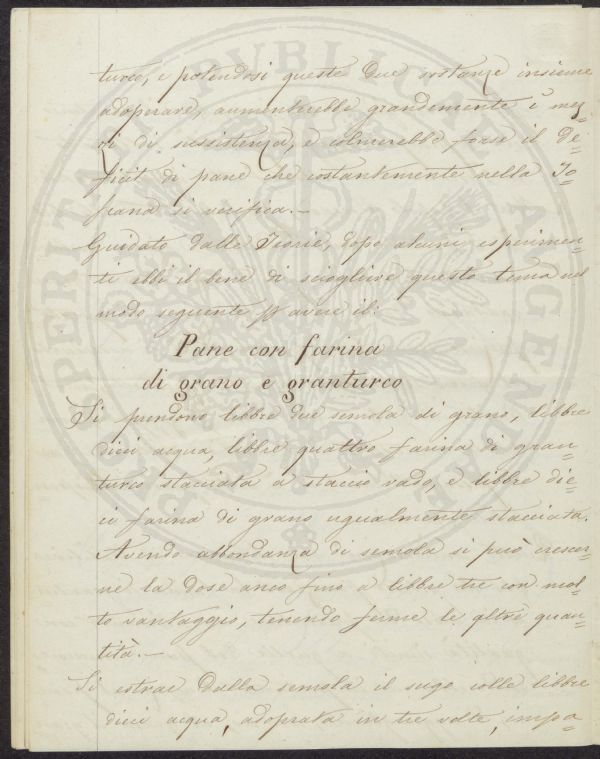 turco, e potendosi queste due sostanze insieme
adoperare, aumenterebbe grandemente i mez=
zi di sussistenza, e colmerebbe forse il de=
ficit di pane che costantemente nella To=
scana si verifica.—
Guidato dalle Teorie, dopo alcuni esperimen=
ti ebbi il bene di sciogliere questo tema nel
modo seguente avere il:
Pane con farina
di grano e granturco
Si prendono libbre due semola di grano, libbre
dieci acqua, libbre quattro farina di gran=
turco stacciata a staccio rado, e libbre die=
ci farina di grano ugualmente stacciata.
Avendo abbondanza di semola si può crescer=
ne la dose anco fino a libbre tre con mol=
to vantaggio, tenendo ferme le altre quan=
tità.—
Si estrae dalla semola il sugo colle libbre
dieci acqua, adoprata in tre volte, impa=
PERITAS PVBLICAE AVGENDAE